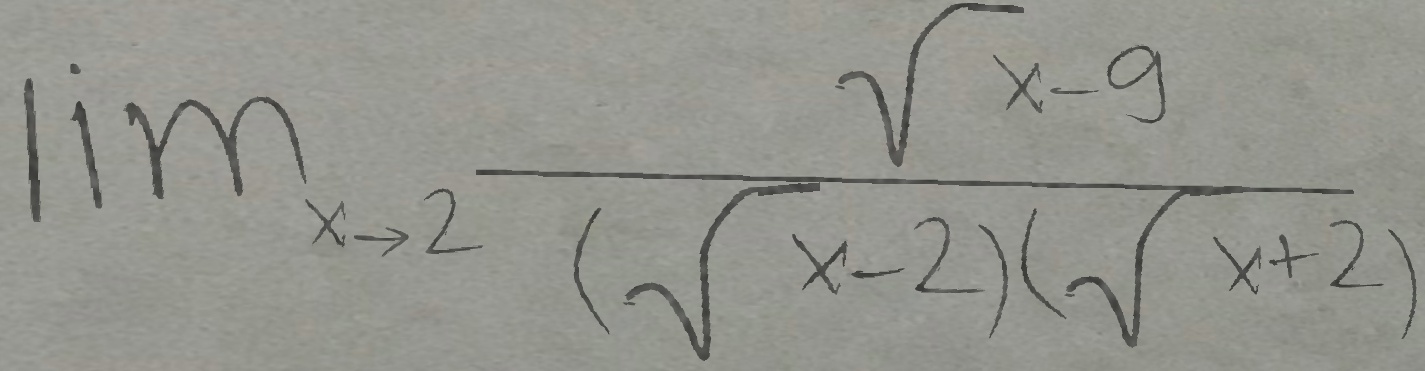 lim x→2 √x-9 / (√x-2)(√x+2)